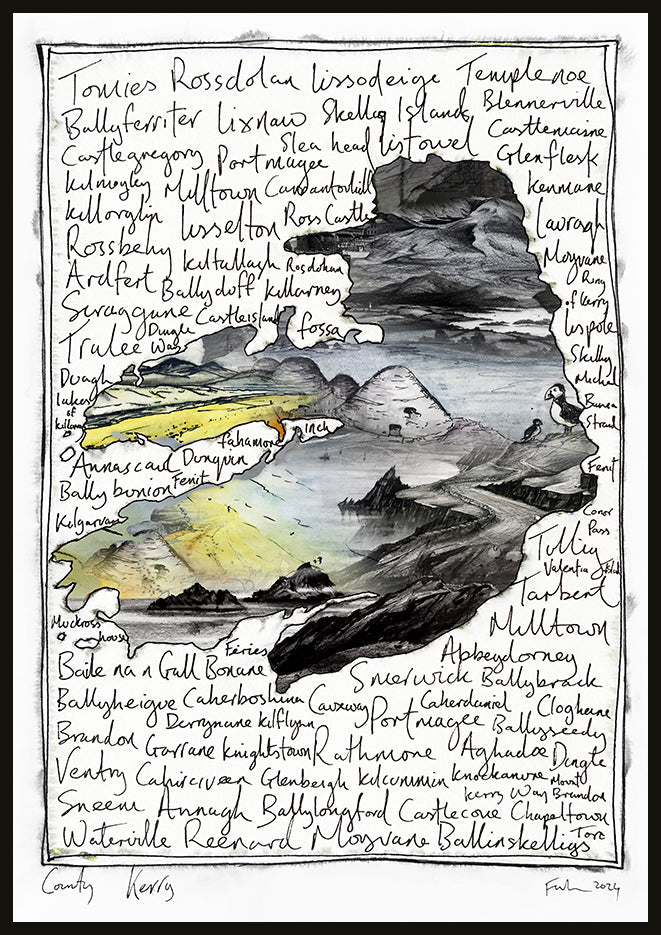 Tomies Rossdolan lissodeige Templenoe
Ballyferriter lixnaw Skellig Islands Blennerville
Castlegregory Portmagee Slea head listowel Castlemaine
Glenflesk
Kilmoyley Milltown Carrantoohill Kenmare
Killorglin lisselton Ross Castle Lauragh
Rossbehy Kiltallagh Rosdohan Moyvane
Ardfert Ballyduff Killarney Ring
of Kerry
Scraggane Dingle Castleisland fossa lispole
Tralee Way Skellig
Duagh Michael
lakes Banna
of Strand
Killarney
fahamore inch
Annascaul Dunquin Fenit
Ballybunion Fenit
Kilgarvan Conor
Pass
Tullig
Valentia Island
Tarbert
Muckross Milltown
house
Feries Abbeydorney
Baile na n Gall Bonane Smerwick Ballybrack
Ballyheigue Causway Caherdaniel Cloghane
Derrynane Kilflynn Portmagee Ballyseedy
Brandon Garrane Knightstown Rathmore Aghadoe Dingle
Ventry Cahirciveen Glenbeigh Kilcummin Knockanure Mount
Kerry Way Brandon
Sneem Annagh Ballylongford Castlecove Chapeltown
Waterville Reenard Moyvane Ballinskelligs Torc
County Kerry
2024